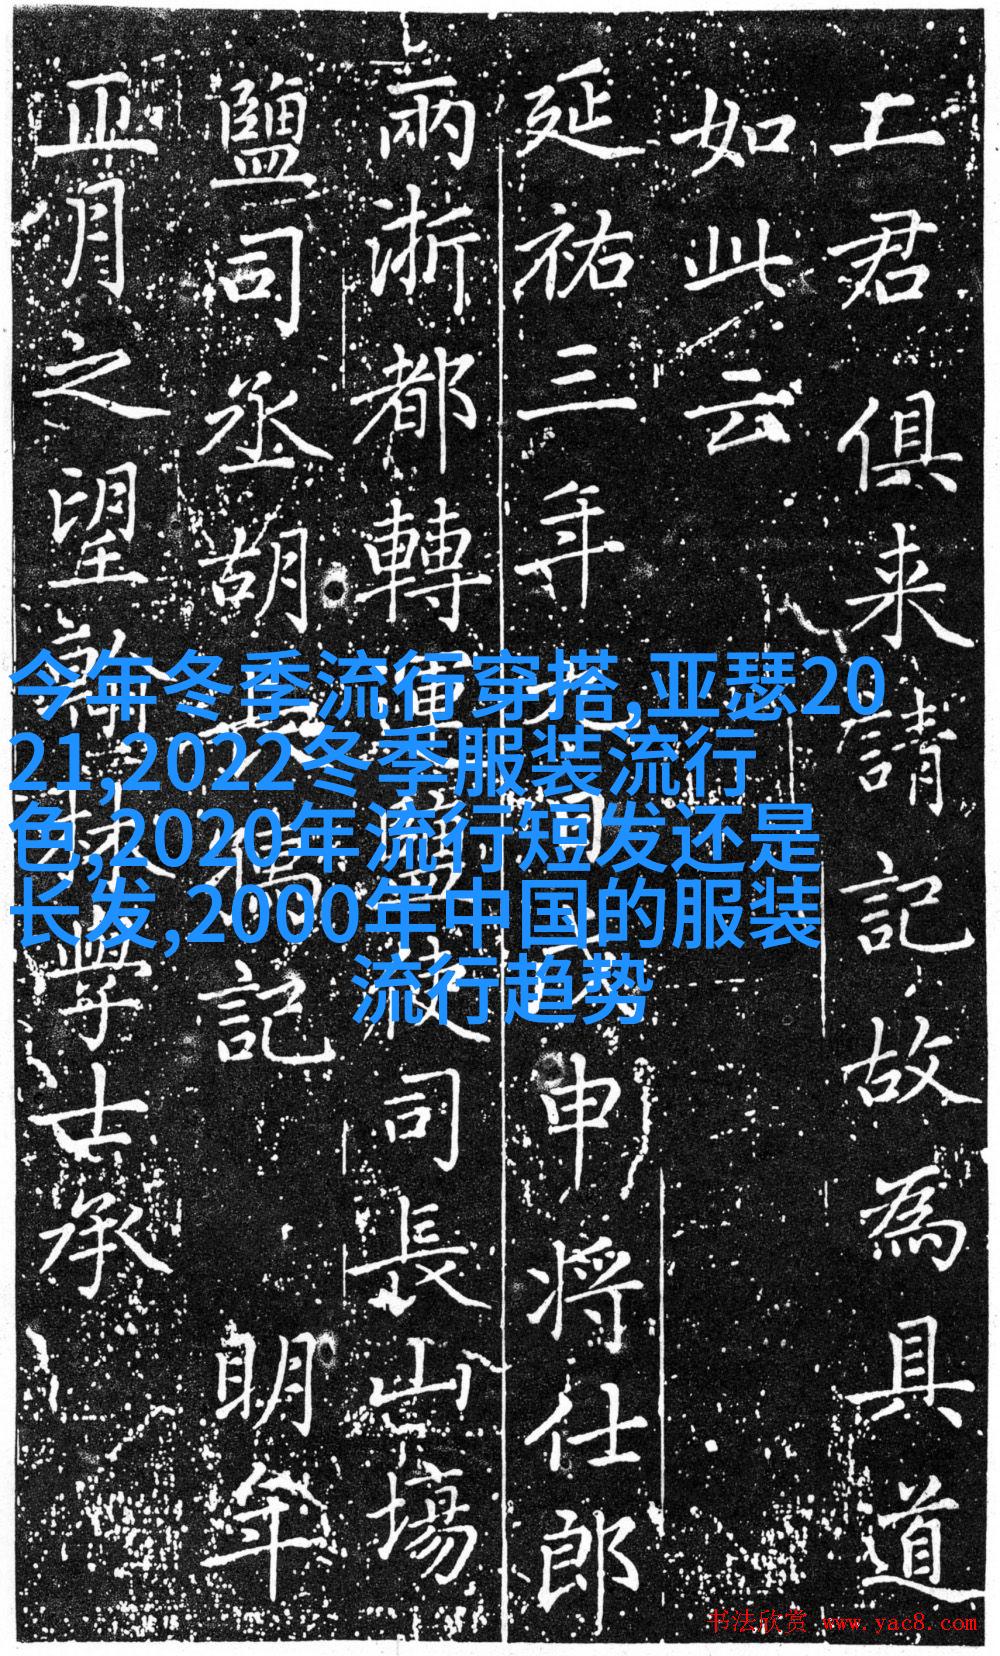 士君俱来請記故為具道
如此云
延祐三年申将仕郎
兩浙都轉運鹽使司長山場
鹽司丞胡記 明年
正月之望翰林學士承
今年冬季流行穿搭,亚瑟20
21,2022冬季服装流行
色,2020年流行短发还是
长发,2000年中国的服装
流行趋势
书法欣赏 www.yac8.com